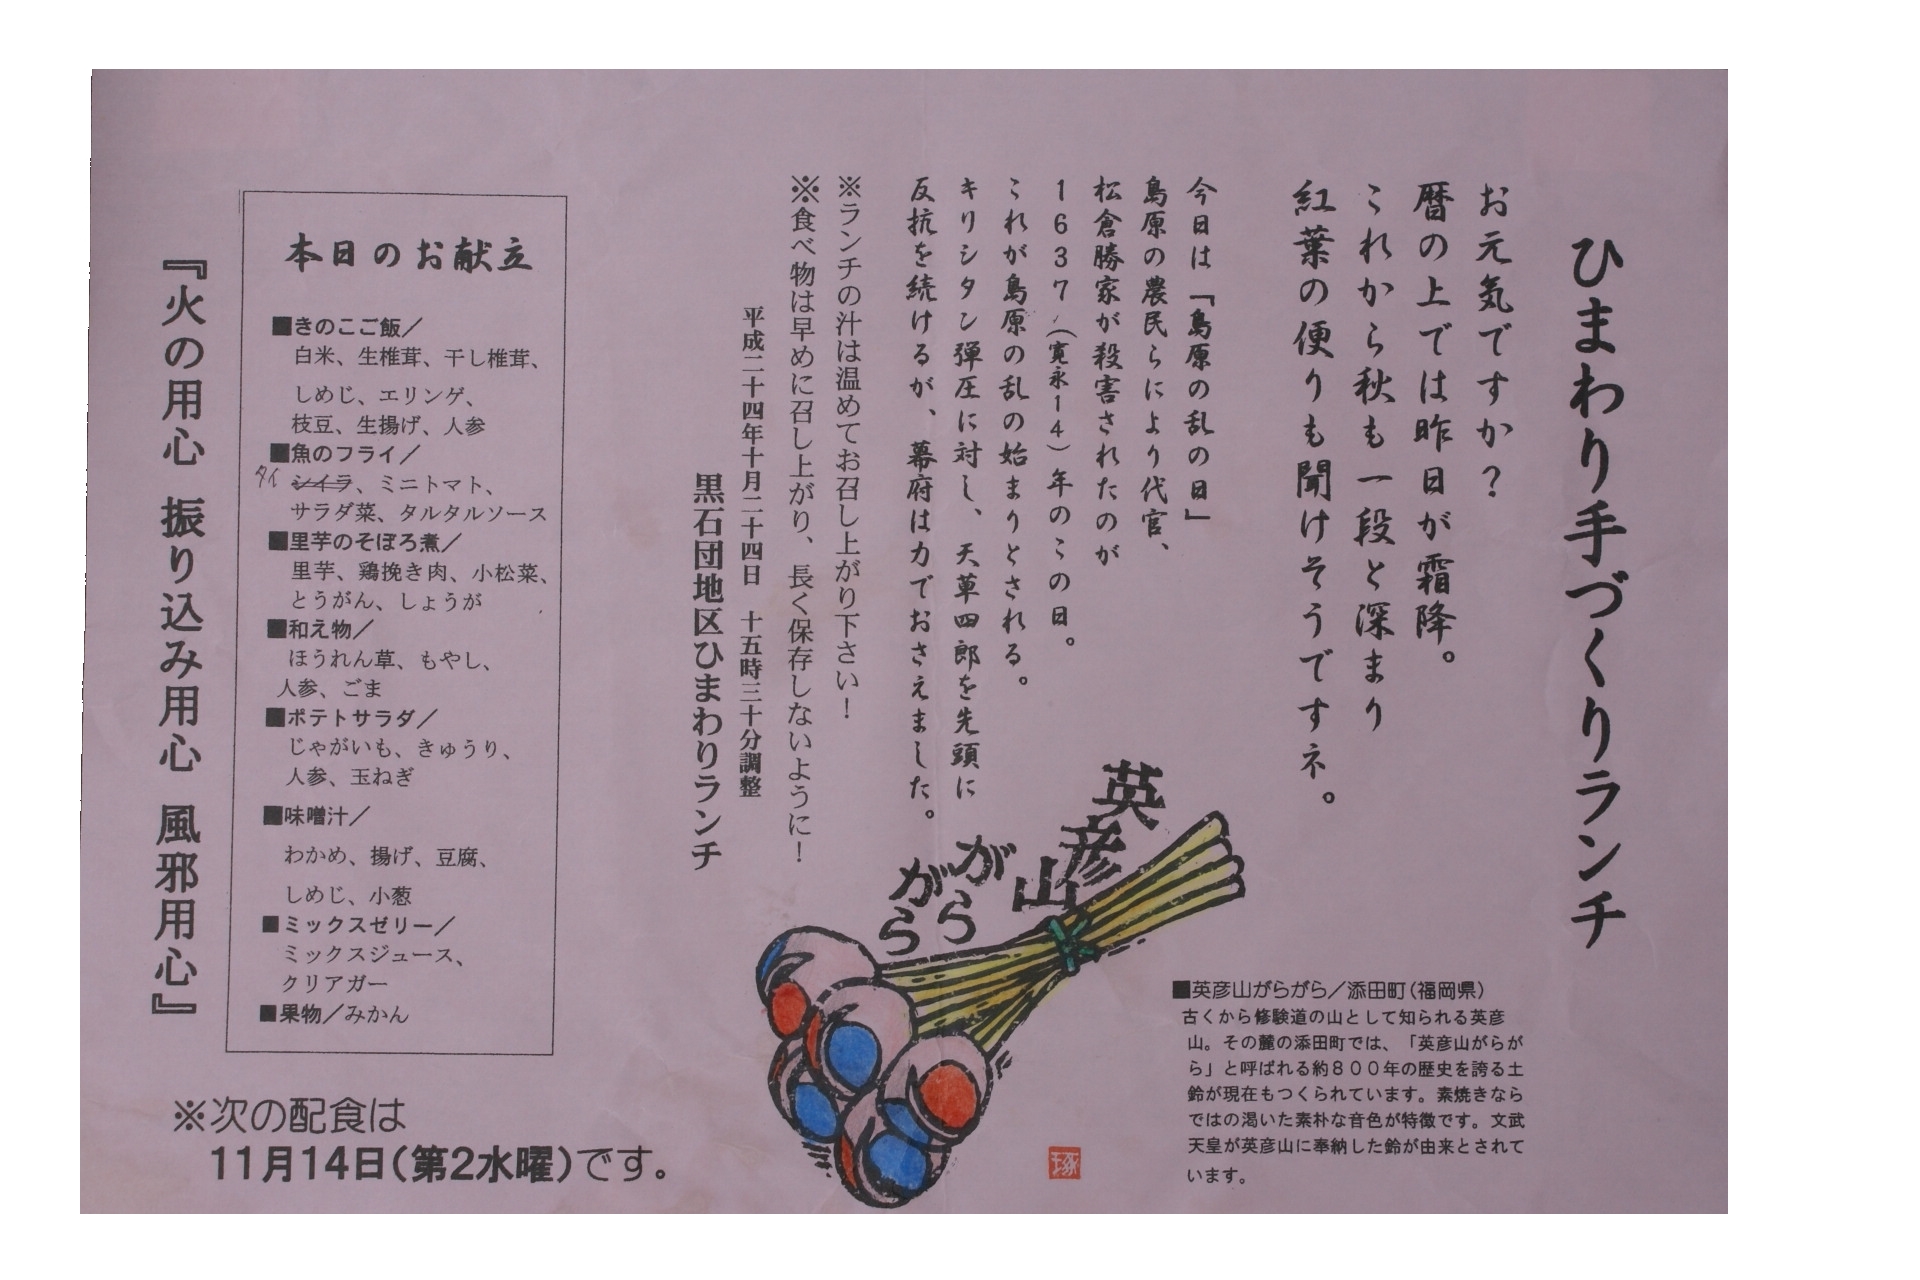 ひまわり手づくりランチ
お元気ですか？
暦の上では昨日が霜降。
これから秋も一段と深まり
紅葉の便りも聞けそうですネ。
今日は「島原の乱の日」
島原の農民らにより代官、
松倉勝家が殺害されたのが
１６３７（寛永１４）年のこの日。
これが島原の乱の始まりとされる。
キリシタン弾圧に対し、天草四郎を先頭に
反抗を続けるが、幕府は力でおさえました。
※ランチの汁は温めてお召し上がり下さい！
※食べ物は早めに召し上がり、長く保存しないように！
平成二十四年十月二十四日　十五時三十分調整
黒石団地区ひまわりランチ
英彦山
がら
がら
■英彦山がらがら／添田町（福岡県）
古くから修験道の山として知られる英彦
山。その麓の添田町では、「英彦山がらが
ら」と呼ばれる約８００年の歴史を誇る土
鈴が現在もつくられています。素焼きなら
ではの渇いた素朴な音色が特徴です。文武
天皇が英彦山に奉納した鈴が由来とされて
います。
琢
本日のお献立
■きのこご飯／
白米、生椎茸、干し椎茸、
しめじ、エリンゲ、
枝豆、生揚げ、人参
■魚のフライ／
タイ シイラ、ミニトマト、
サラダ菜、タルタルソース
■里芋のそぼろ煮／
里芋、鶏挽き肉、小松菜、
とうがん、しょうが
■和え物／
ほうれん草、もやし、
人参、ごま
■ポテトサラダ／
じゃがいも、きゅうり、
人参、玉ねぎ
■味噌汁／
わかめ、揚げ、豆腐、
しめじ、小葱
■ミックスゼリー／
ミックスジュース、
クリアガー
■果物／みかん
『火の用心 振り込み用心 風邪用心』
※次の配食は
11月14日（第2水曜）です。